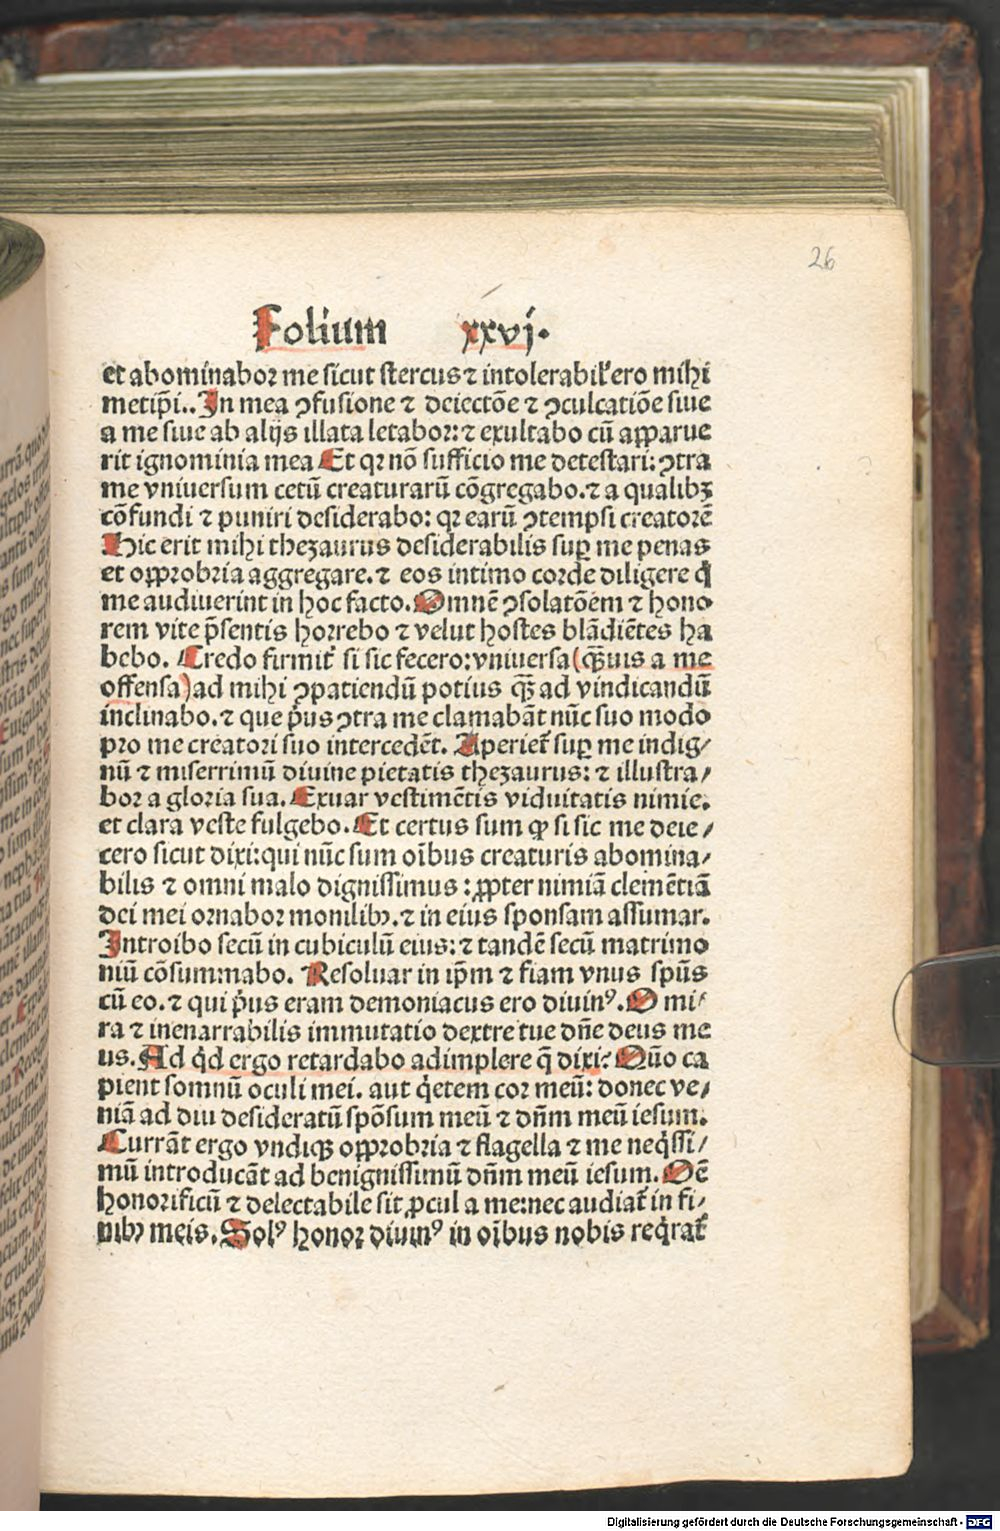 26
Folium xxvj.
et abominabor me sicut stercus ⁊ intolerabil' ero mihi
metip̄i.. In mea ꝯfusione ⁊ deiectōe ⁊ ꝯculcatiōe siue
a me siue ab alijs illata letabor: ⁊ exultabo cū apparue
rit ignominia mea Et qꝛ nō sufficio me detestari: ꝯtra
me vniuersum cetū creaturarū cōgregabo. ⁊ a qualibꝫ
cōfundi ⁊ puniri desiderabo: qꝛ earū ꝯtempsi creatorē
Hic erit mihi thezaurus desiderabilis suꝑ me penas
et opprobria aggregare. ⁊ eos intimo corde diligere q̇
me adiuuerint in hoc facto. Omnē ꝯsolatōem ⁊ hono
rem vite p̄sentis horrebo ⁊ velut hostes blādiētes ha
bebo. Credo firmit̄ si sic fecero: vniuersa (qȝuis a me
offensa) ad mihi ꝯpatiendū potius qȝ ad vindicandū
inclinabo. ⁊ que pͥus ꝯtra me clamabāt nūc suo modo
pro me creatori suo intercedēt. Aperiet̄ suꝑ me indig/
nū ⁊ miserrimū diuine pietatis thezaurus: ⁊ illustra/
bor a gloria sua. Exuar vestimētis viduitatis nimie.
et clara veste fulgebo. Et certus sum ꝙ si sic me deie/
cero sicut dixi: qui nūc sum oībus creaturis abomina/
bilis ⁊ omni malo dignissimus: ꝓpter nimiā clemētiā
dei mei ornabor monilibꝫ. ⁊ in eius sponsam assumar.
Introibo secū in cubiculū eius: ⁊ tandē secū matrimo
niū cōsummabo. Resoluar in ip̄m ⁊ fiam vnus sp̄us
cū eo. ⁊ qui pͥus eram demoniacus ero diuinꝰ. O mi/
ra ⁊ inenarrabilis immutatio dextre tue dn̄e deus me
us. Ad qͥd ergo retardabo adimplere q̄ dixi: Quō ca
pient somnū oculi mei. aut qͥetem cor meū: donec ve/
niā ad diu desideratū spōsum meū ⁊ dn̄m meū iesum.
Currāt ergo vndiqꝫ opprobria ⁊ flagella ⁊ me neqͥssi/
mū introducāt ad benignissimū dn̄m meū iesum. Oē
honorificū ⁊ delectabile sit ꝓcul a me: nec audiat̄ in fi/
nibꝫ meis. Solꝰ honor diuinꝰ in oībus nobis reqͥrat̄
Digitalisierung gefördert durch die Deutsche Forschungsgemeinschaft - DFG